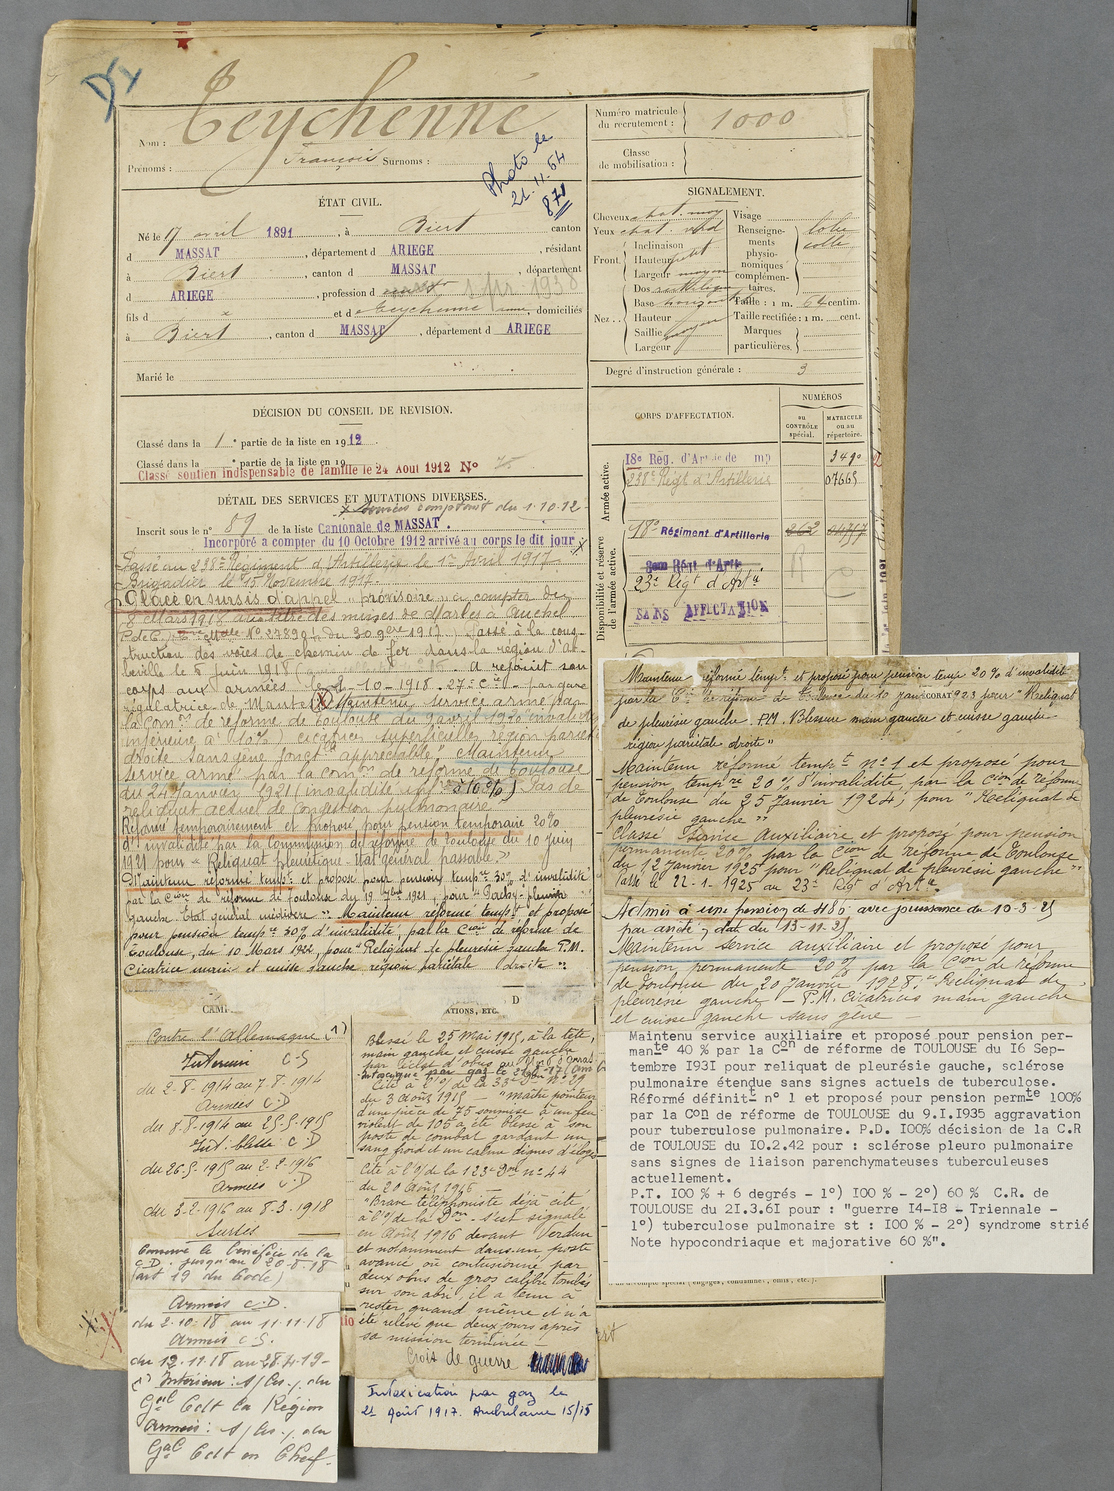 Teychenné
Nom :
Prénoms : François Surnoms :
Photo le
21.11.64
871
Numéro matricule
du recrutement : 1000
Classe
de mobilisation :
ÉTAT CIVIL.
Né le 17 avril 1891, à Biert canton
d MASSAT, département d ARIEGE, résidant
à Biert, canton d MASSAT, département
d ARIEGE, profession d
fils d x et d e Teychenné domiciliés
à Biert, canton d MASSAT, département d ARIEGE
Marié le
SIGNALEMENT.
Cheveux chat. moy
Yeux chat. verd
Front.
Inclinaison
Hauteur petit
Largeur moyen
Nez..
Dos rectiligne
Base horizont
Hauteur
Saillie moyen
Largeur
Visage
Renseigne-
ments
physio-
nomiques
complémen-
taires.
lobe
collé
Taille : 1 m. 64 centim.
Taille rectifiée : 1 m. cent.
Marques
particulières.
Degré d'instruction générale : 3
DÉCISION DU CONSEIL DE REVISION.
Classé dans la 1e partie de la liste en 1912.
Classé dans la e partie de la liste en 19
Classé soutien indispensable de famille le 24 Aout 1912 No
DÉTAIL DES SERVICES ET MUTATIONS DIVERSES.
x Services comptant du 1.10.12
Inscrit sous le n° 89 de la liste Cantonale de MASSAT.
Incorporé a compter du 10 Octobre 1912 arrivé au corps le dit jour
Passé au 238e Régiment d'Artillerie le 1er Avril 1917
Brigadier le 15 Novembre 1917.
Placé en sursis d'appel "provisoire" à compter du
8 Mars 1918 au titre des mines de Marles à Auchel
P. de C. No 27890 du 30 9bre 1917. Passé à la cons-
truction des voies de chemin de fer dans la région d'Ab-
beville le 5 juin 1918 A rejoint son
corps aux armées le 2-10-1918. 27e Cie par gare
régulatrice de Mantes Maintenu service armé par
la comon de réforme de Toulouse du 9 avril 1920 invalidité
inférieure à 10%) cicatrice superficielle région pariét
droite sans gêne fonctle appréciable" Maintenu
service armé par la comon de réforme de Toulouse
du 24 Janvier 1921 (invalidité infre à 10%) Pas de
reliquat actuel de congestion pulmonaire.
Réformé temporairement et proposé pour pension temporaire 20%
d'invalidité par la Commission de réforme de Toulouse du 10 juin
1921 pour "Reliquat pleurétique. état général passable."
Maintenu réformé tempt. et proposé pour pension tempre 30% d'invalidité
par la Cion de réforme de Toulouse du 19 7bre 1921, pour "Pachy-pleurite
gauche. Etat général médiocre". Maintenu réformé tempt et proposé
pour pension tempre 30% d'invalidité, par la Cion de réforme de
Toulouse, du 10 Mars 1922, pour "Reliquat de pleurésie gauche P.M.
Cicatrice main et cuisse gauche région pariétale droite"
CORPS D'AFFECTATION.
NUMÉROS
au
CONTRÔLE
spécial.
MATRICULE
ou au
répertoire.
Armée active.
18e Rég. d'Artie de 3490
238e Régt d'Artillerie 07665
Disponibilité et réserve
de l'armée active.
18e Régiment d'Artillerie 262 04757
23e Régt d'Arté
SANS AFFECTATION
Maintenu réformé tempt et proposé pour pension temp 20% d'invalidité
par la Con de réforme de Toulouse du 10 janvier 1923 pour "Reliquat
de pleurésie gauche. P.M. Blessure main gauche et cuisse gauche
région pariétale droite"
Maintenu réformé tempt n°1 et proposé pour
pension tempre 20% d'invalidité par la Cion de réforme
de Toulouse du 25 Janvier 1924; pour "Reliquat de
pleurésie gauche"
Classé Service Auxiliaire et proposé pour pension
permanente 20% par la Cion de Réforme de Toulouse
du 12 Janvier 1925 pour "Reliquat de pleurésie gauche"
Passé le 22-1-1925 au 23e Régt d'Arte.
Admis à une pension de 480 avec jouissance du 10-3-25
par arrêté, dat du (13-11-2
Maintenu service auxiliaire et proposé pour
pension permanente 20% par la Cion de réforme
de Toulouse du 20 Janvier 1928: "Reliquat de
pleurésie gauche – P.M. Cicatrices main gauche
et cuisse gauche sans gêne –
Maintenu service auxiliaire et proposé pour pension per-
mante 40 % par la Con de réforme de TOULOUSE du I6 Sep-
tembre I93I pour reliquat de pleurésie gauche, sclérose
pulmonaire étendue sans signes actuels de tuberculose.
Réformé définitt n° 1 et proposé pour pension permte 100%
par la Con de réforme de TOULOUSE du 9.I.I935 aggravation
pour tuberculose pulmonaire. P.D. IOO% décision de la C.R
de TOULOUSE du IO.2.42 pour : sclérose pleuro pulmonaire
sans signes de liaison parenchymateuses tuberculeuses
actuellement.
P.T. IOO % + 6 degrés - 1°) IOO % - 2°) 60 % C.R. de
TOULOUSE du 2I.3.6I pour : "guerre I4-I8 - Triennale -
1°) tuberculose pulmonaire st : IOO % - 2°) syndrome strié
Note hypocondriaque et majorative 60 %".
CAM
Contre l'Allemagne (1)
Intérieur C-S
du 2.8.1914 au 7.8.1914
Armées C.D
du 8.8.1914 au 25.5.1915
Int. blessé C.D
du 26.5.1915 au 2.2.1916
Armées C.D
du 3.2.1916 au 8.3.1918
Sursis
Conservé le bénéfice de la
C.D. jusqu'au 20-8-18
(art 19 du Code)
Armées C.D.
du 2.10.18 au 11.11.18
Armées C.S.
du 12.11.18 au 28.4.19-
(1) Intérieur: s/les. /. du
Gal Cdt la Région
Armées: s/les. /. du
Gal Cdt en Chef.
ATIONS, ETC.
Blessé le 25 Mai 1915, à la tête,
main gauche et cuisse gauche
par éclat d'obus
Intoxiqué par gaz le 21-8-17
Cité à l'O/ de la 33e Don N° 29
du 3 Août 1915 – "Maître pointeur
d'une pièce de 75 soumise à un feu
violent de 105 a été blessé à son
poste de combat gardant un
sang froid et un calme dignes d'éloges
Cité à l'O/ de la 123e Don n° 44
du 20 Août 1916 –
"Brave téléphoniste déjà cité
à l'O/ de la Don. S'est signalé
en Août 1916 devant Verdun
et notamment dans un poste
avancé où contusionné par
deux obus de gros calibre tombés
sur son abri, il a tenu à
rester quand même et n'a
été relevé que deux jours après
sa mission terminée –
Croix de guerre
Intoxication par gaz le
21 Août 1917. Ambulance 15/15